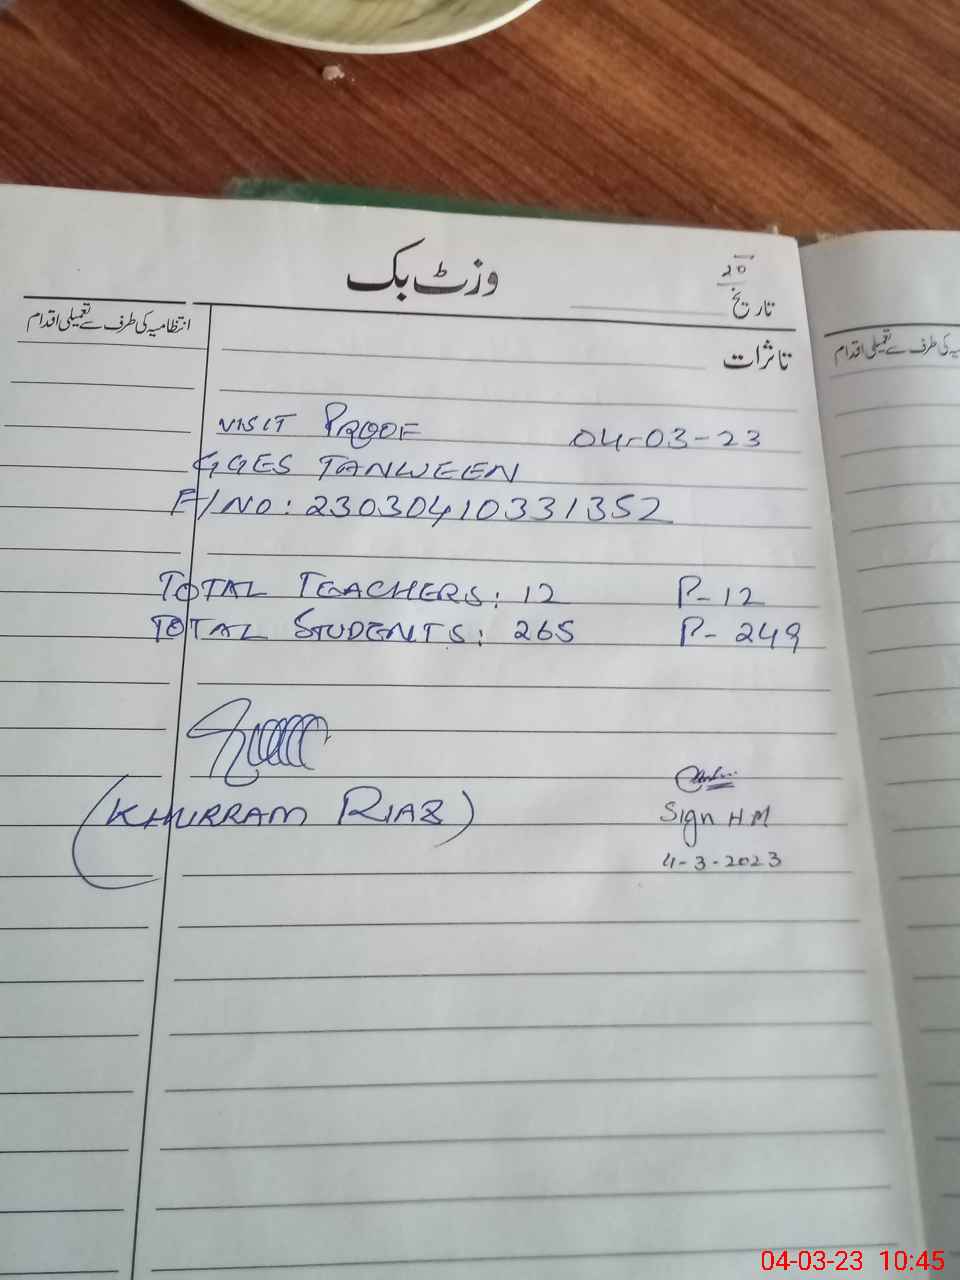 وزٹ بک
۲۰
تاریخ
انتظامیہ کی طرف سے تعمیلی اقدام
تاثرات
یہ کی طرف سے تعمیلی اقدام
VISIT PROOF 04-03-23
GGES TANWEEN
F/NO: 23030410331352
TOTAL TEACHERS: 12 P-12
TOTAL STUDENTS: 265 P- 249
(KHURRAM RIAZ)
Sign HM
4-3-2023
04-03-23 10:45